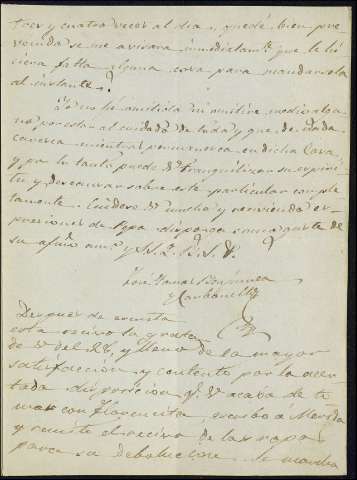 tres y cuatro veces al dia y quedé bien pre
venida se me avisara inmediatam.te que le hi
ciera falta alguna cosa para mandarsela
al instante.
Yo no he omitido ni omitiré medio alg
no por estar al cuidado de todo y que de nada
caresca mientras permanesca en dicha Casa,
y por lo tanto puede V tranquilizar su espiri
tu y descansar sobre este particular comple
tamente. Cuidese V mucho y reciviendo es
presiones de Pepa disponga como guste de
su afmo am.o y S. S. Q. B. S. M.
José
y Carbonell
Despues de escrita
esta recivo su grata
de V del 26, y lleno de la mayor
satisfaccion y contento por la acer
tada disposicion q.e V acaba de to
mar con Florencita escribo a
y remite el recivo de las ropas
para su debolucion. la